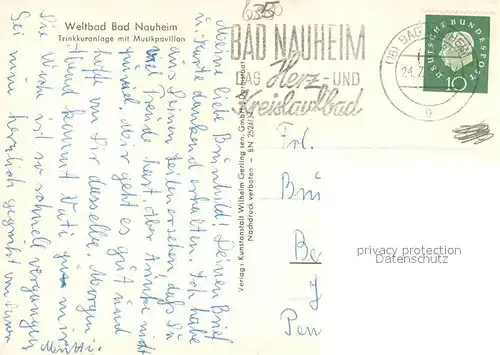 Weltbad Bad Nauheim
Trinkkuranlage mit Musikpavillon
6350
BAD NAUHEIM
DAS Herz- UND
Kreislaufbad
(16) BAD NAUHEIM
DEUTSCHE BUNDESPOST
10
Meine liebe Brunhild! Deinen Brief
u. Karte dankend erhalten. Ich habe
aus Deinen Zeilen ersehen, daß Du
Freude hast. Aber trinke nicht
Mir geht es gut und
hoffe von Dir dasselbe. Morgen
Abend kommt Vati zu mir
Die Woche ist so schnell vergangen
Sei nun herzlich gegrüßt von Deiner
Mutti.
Verlag: Kunstanstalt Wilhelm Gerling sen. GmbH, Darmstadt
Nachdruck verboten BN 2524/34
Frl.
Bru
Be
J
Pen
privacy protection
Datenschutz